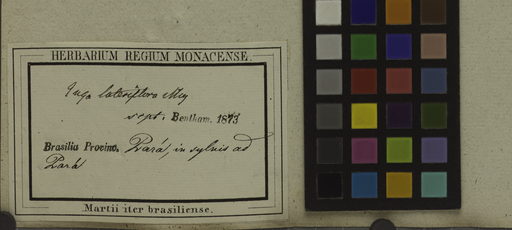 HERBARIUM REGIUM MONACENSE.
Inga lateriflora Miq
sept. Bentham. 1873
Brasilia Provinc. Pará, in sylvis ad
Pará
Martii iter brasiliense.